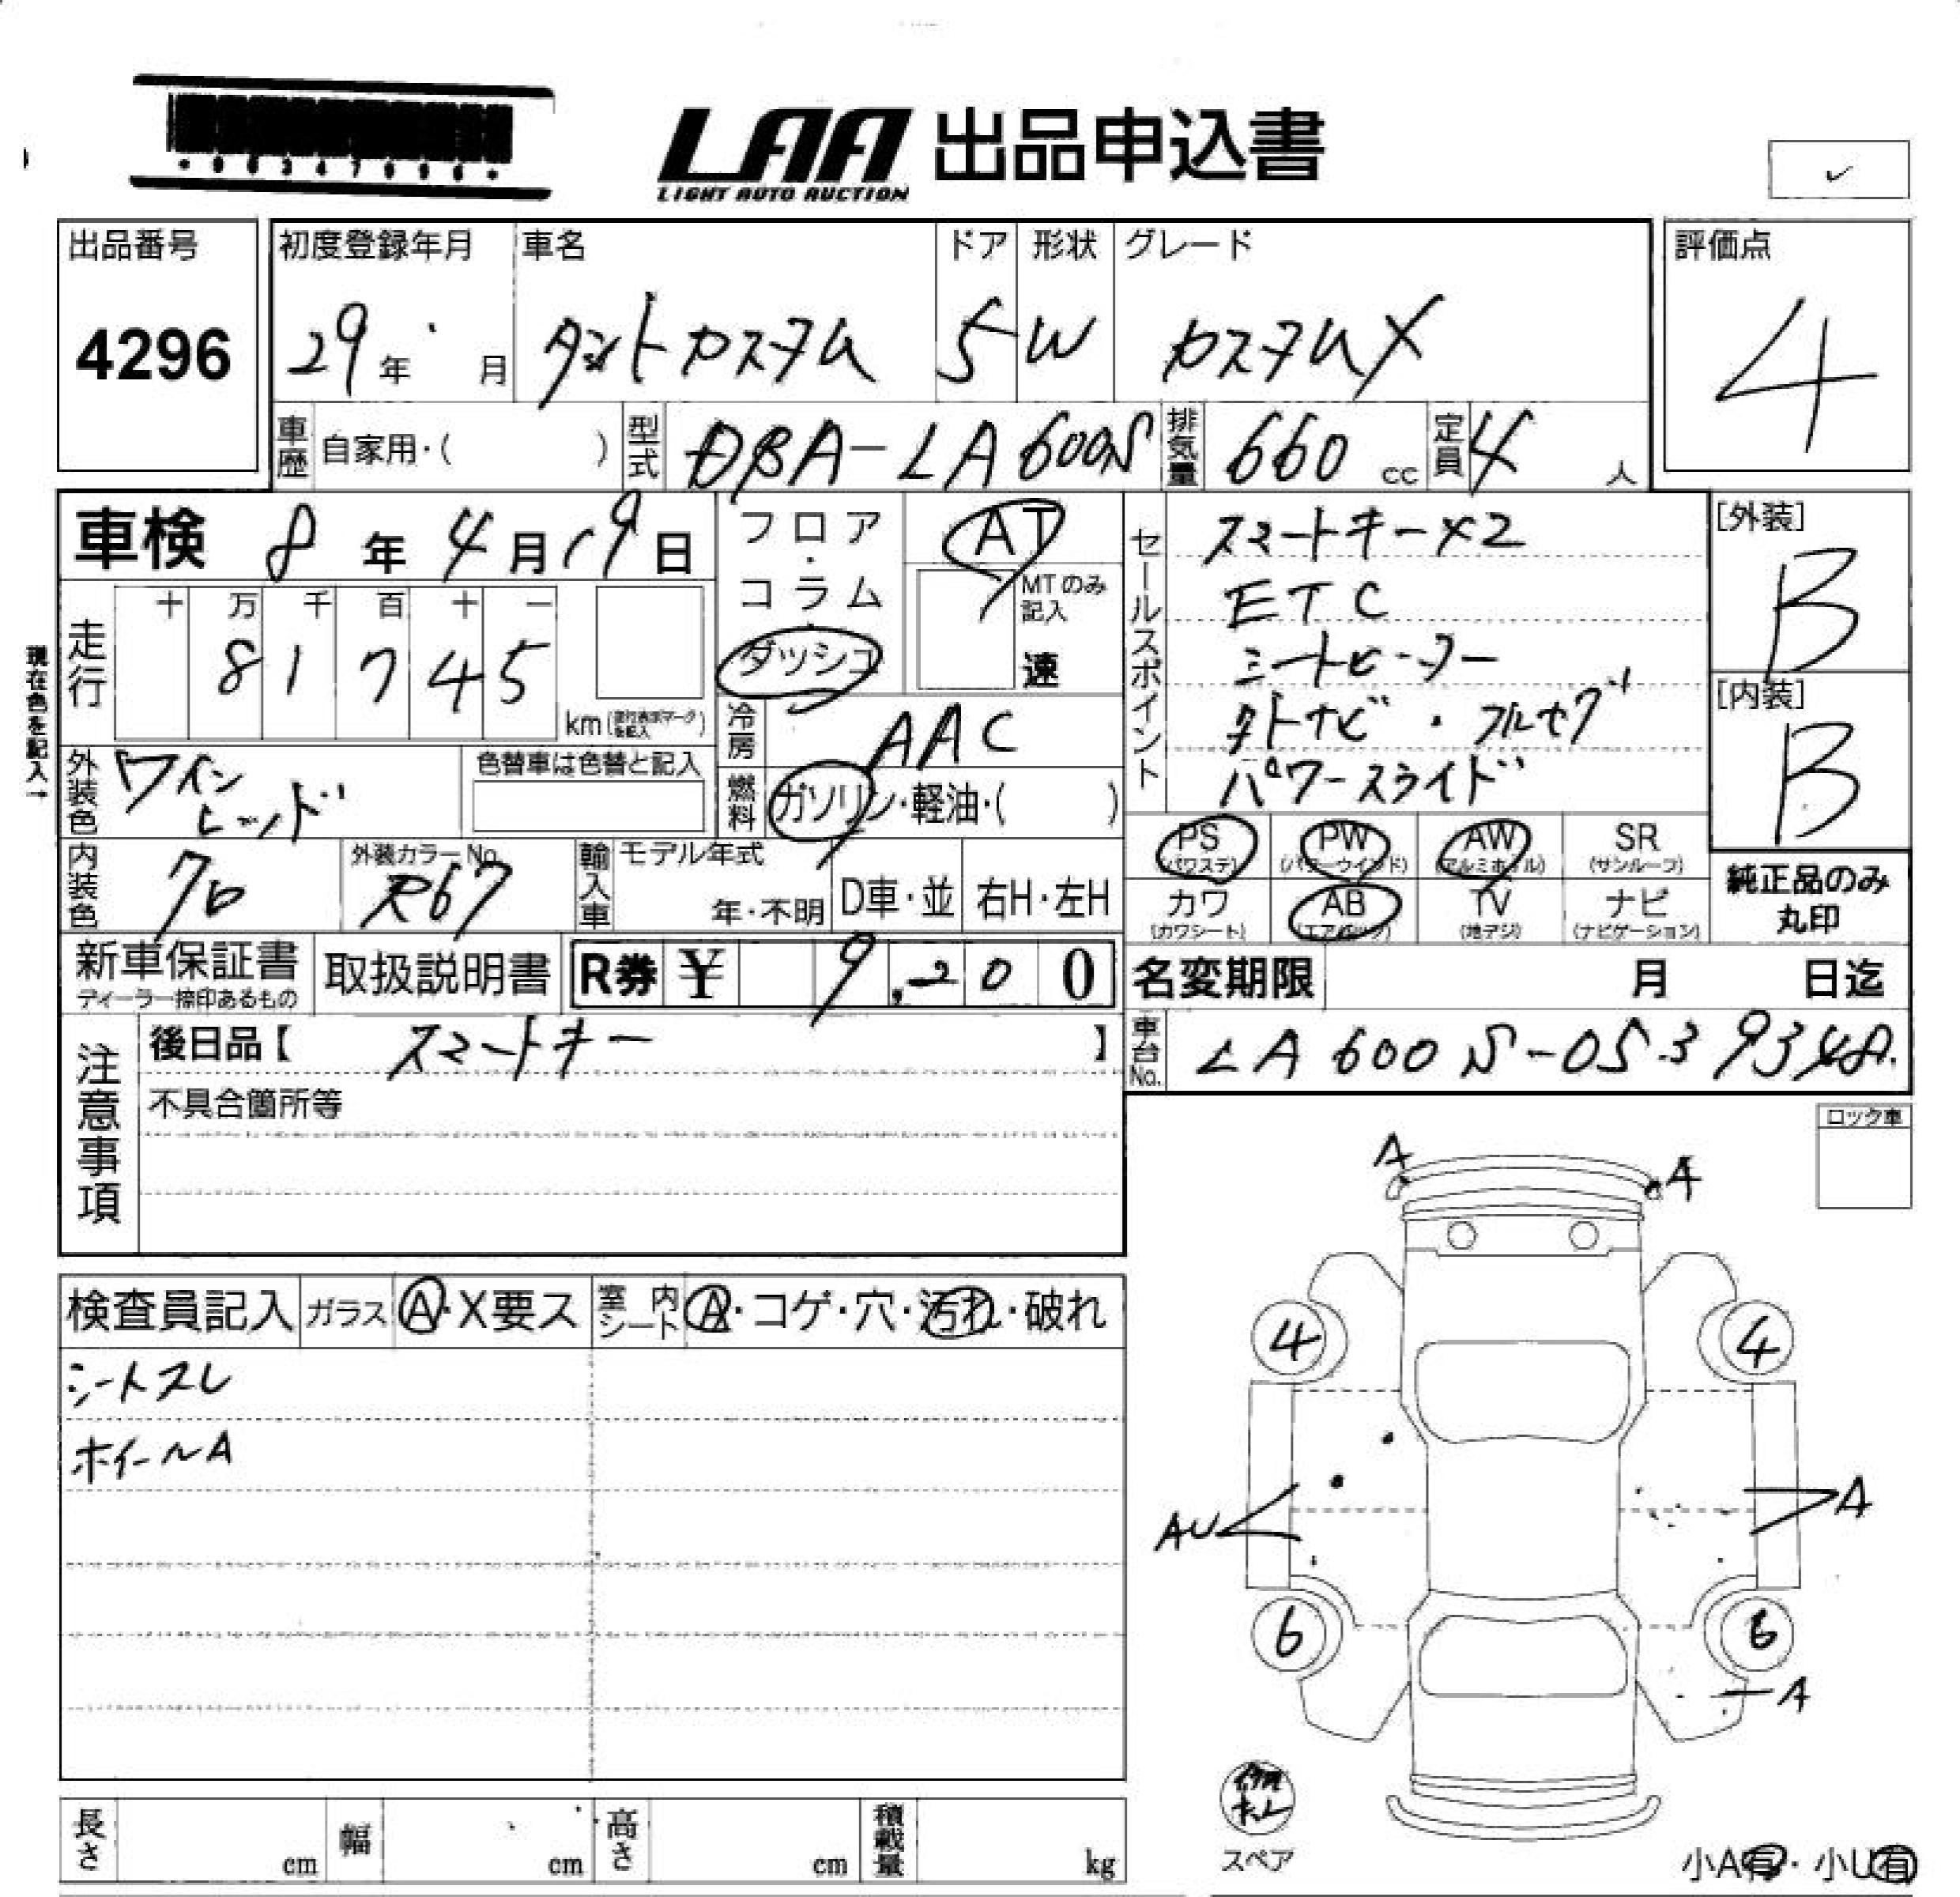 LAA 出品申込書
LIGHT AUTO AUCTION
出品番号 初度登録年月 車名 ドア 形状 グレード 評価点
4296 29年 月 タントカスタム 5 W カスタムX 4
車歴 自家用・( ) 型式 DBA-LA600S 排気量 660 cc 定員 4 人
車検 8年4月19日
フロア・コラム・ダッシュ
AT
MTのみ記入
速
セールスポイント
スマートキー×2
ETC
シートヒーター
外ナビ・フルセグ
パワースライド
[外装]
B
[内装]
B
現在色を記入→
走行 十 万 千 百 十 一
8 1 7 4 5
km
冷房 AAC
外装色 ワインレッド 色替車は色替と記入
燃料 ガソリン・軽油・( )
内装色 70 外装カラーNo. R67 輸入車 モデル年式 年・不明 D車・並 右H・左H
PS (パワステ) PW (パワーウインド) AW (アルミホイル) SR (サンルーフ)
カワ (カワシート) AB (エアバッグ) TV (地デジ) ナビ (ナビゲーション)
純正品のみ
丸印
新車保証書 取扱説明書 R券 ¥ 9,200
ディーラー捺印あるもの
名変期限 月 日迄
注意事項
後日品【 スマートキー 】
車台No. LA600S-0539348
不具合箇所等
ロック車
検査員記入 ガラス A・X要ス 室内シート A・コゲ・穴・汚れ・破れ
シートスレ
ホイールA
A A
4 4
AU A
6 6
A
スペア
長さ cm 幅 cm 高さ cm 積載量 kg
小A有・小U有